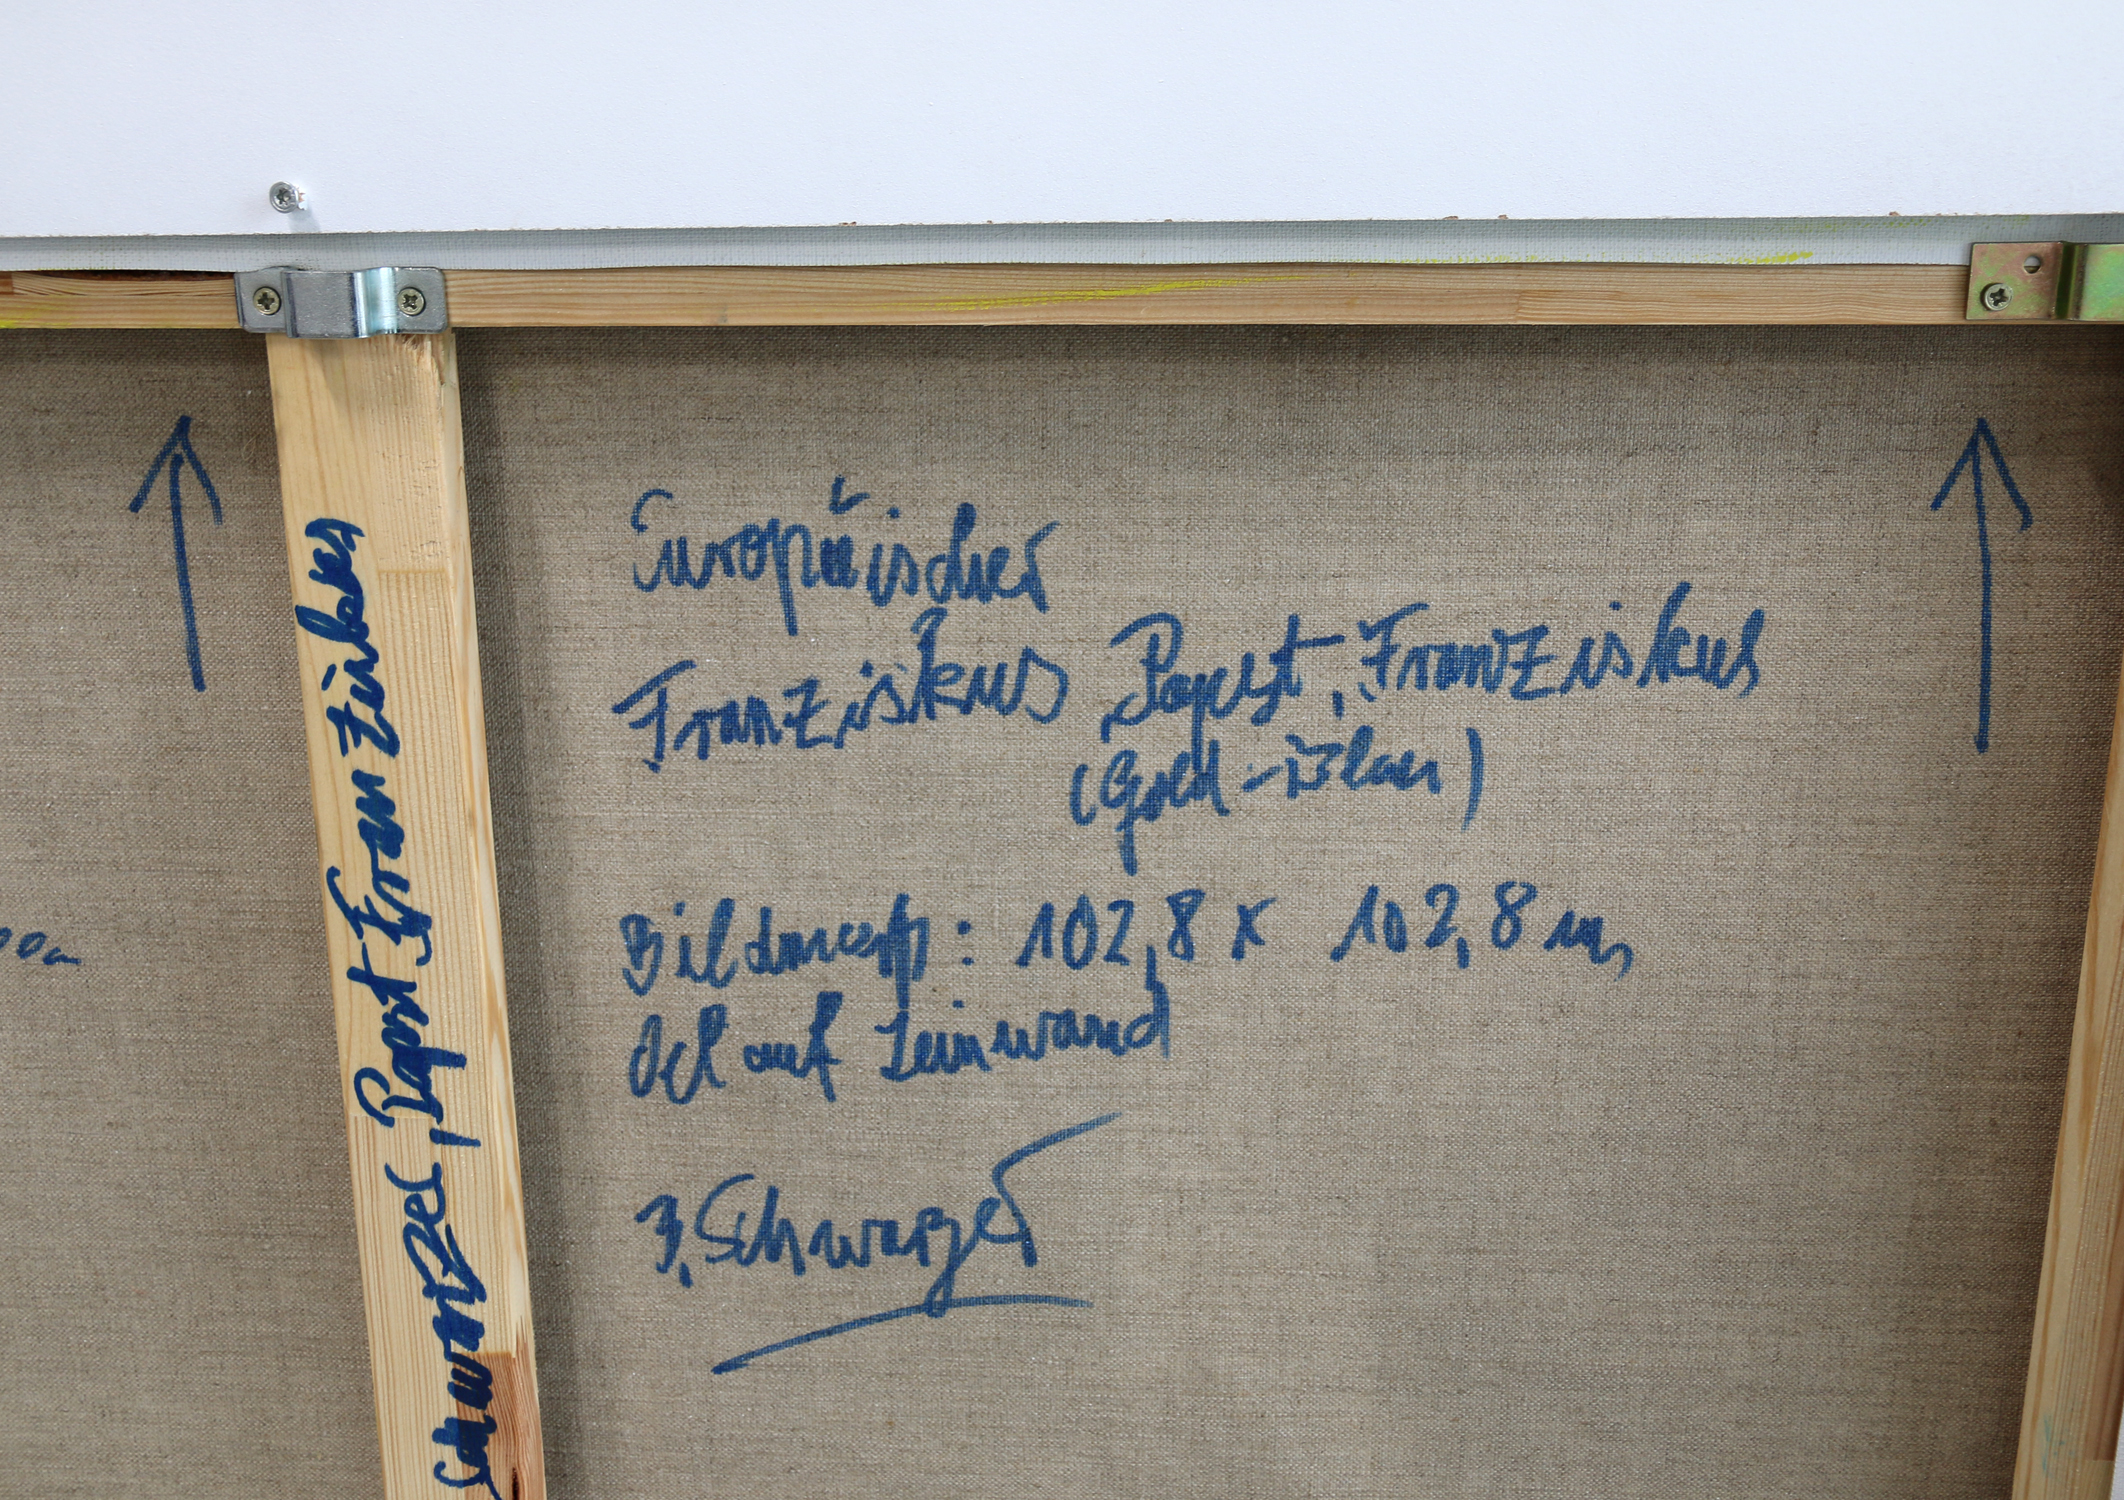 Schwarzer, Papst Franziskus
Europäischer
Franziskus Papst, Franziskus
(Gold-Blau)
Bildmaß: 102,8 x 102,8 cm,
Oel auf Leinwand
B. Schwarzer